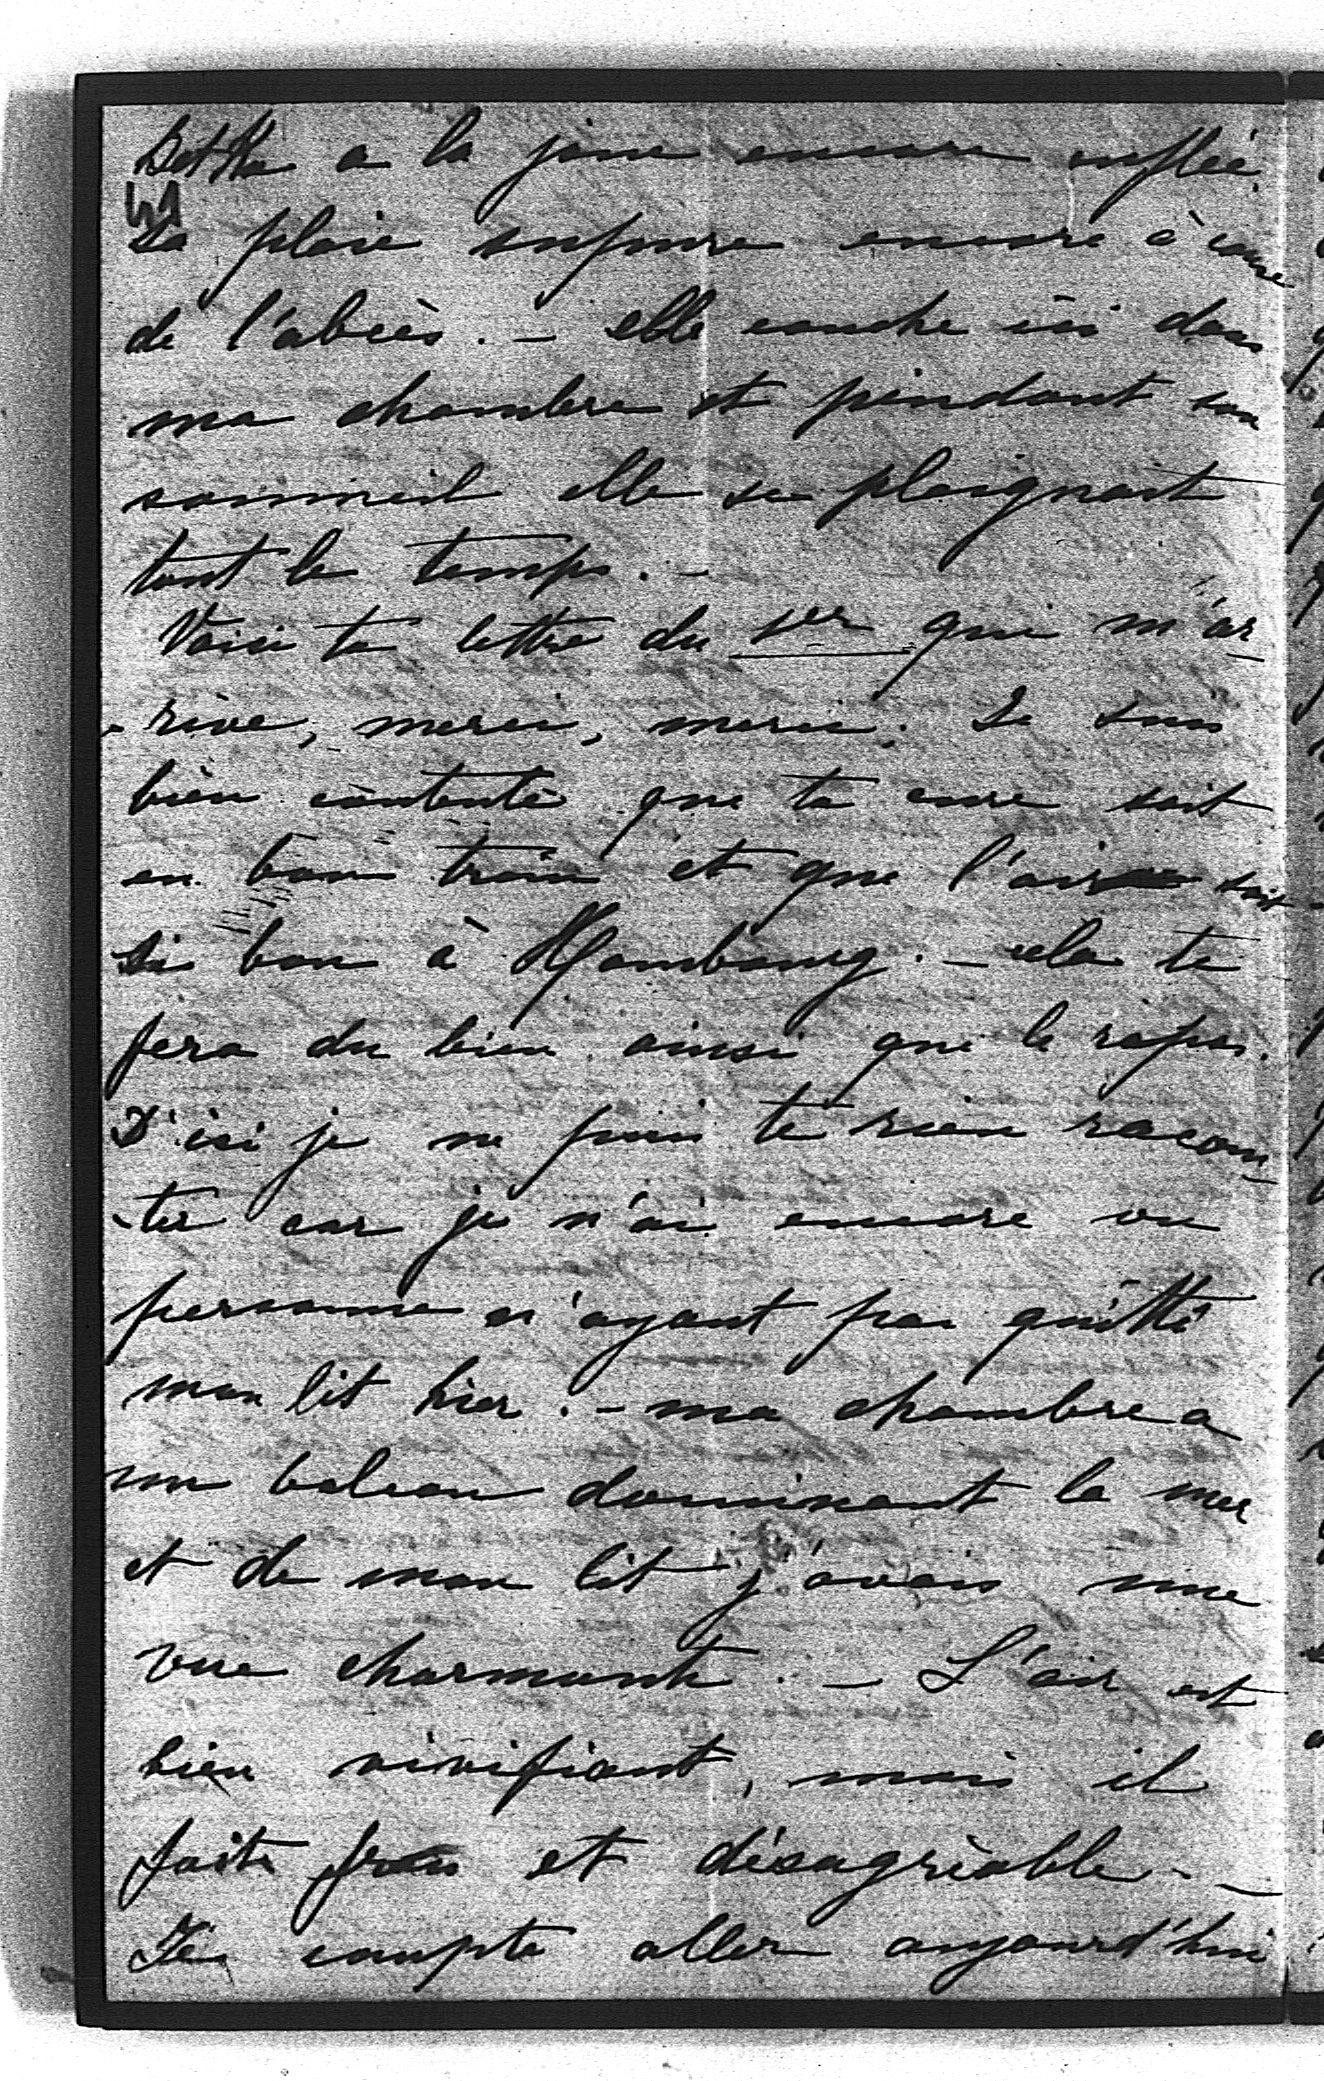 a la joue encore enflée.
41
La plaie supure encore à cause
de l'abcès. – elle couche ici dans
ma chambre et pendant son
sommeil elle se plaignait
tout le temps. –
Voici ta lettre du 1er qui m'ar-
-rive, merci, merci. Je suis
bien contente que ta cure soit
en bon train et que l'air soit
si bon à Hombourg. – cela te
fera du bien ainsi que le repos.
D'ici je ne puis te rien racon-
-ter car je n'ai encore vu
personne n'ayant pas quitté
mon lit hier. – ma chambre a
un balcon dominant la mer
et de mon lit j'avais une
vue charmante. – L'air est
bien vivifiant, mais il
fait et désagréable. –
Je compte aller aujourd'hui